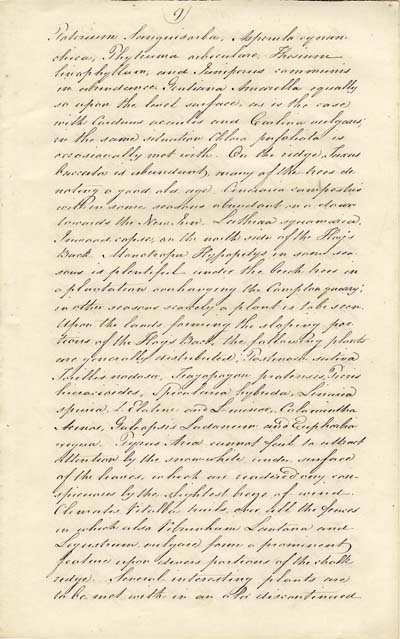 9)
Poterium Sanguisorba, Asperula cynan-
chica, Phyteuma orbiculare, Thesium
linophyllum, and Juniperus communis
in abundance, Gentiana Amarella equally
so upon the level surface, as is the case
with Carduus acaulis and Carlina vulgaris;
in the same situation Chlora perfoliata is
occasionally met with. On the ridge, Taxus
baccata is abundant, many of the trees de-
noting a good old age. Cineraria campestris
in some seasons abundant on a down
towards the New Inn. Lathraea squamaria,
copse, on the north side of the Hog's
Back. Monotropa Hypopitys in some sea-
sons is plentiful under the beech trees in
a plantation overhanging the Compton quarry;
in other seasons scarcely a plant is to be seen.
Upon the lands forming the sloping por-
tions of the Hog's Back, the following plants
are generally distributed, Pastinaca sativa
Torilis nodosa, Tragopogon pratensis, Picris
hieracioides, Specularia hybrida, Linaria
spuria, L. Elatine and L. minor, Calamintha
Acinos, Galeopsis Ladanum and Euphorbia
exigua. Pyrus Aria cannot fail to attract
attention by the snow white under surface
of the leaves, which are rendered very con-
spicuous by the slightest breeze of wind.
Clematis Vitalba trails over all the fences
in which also Viburnum Lantana and
Ligustrum vulgare form a prominent
feature upon divers portions of the chalk
ridge. Several interesting plants are
to be met with in an old discontinued